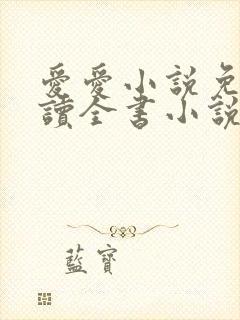 愛愛小説免
讀全書小說
藍寶